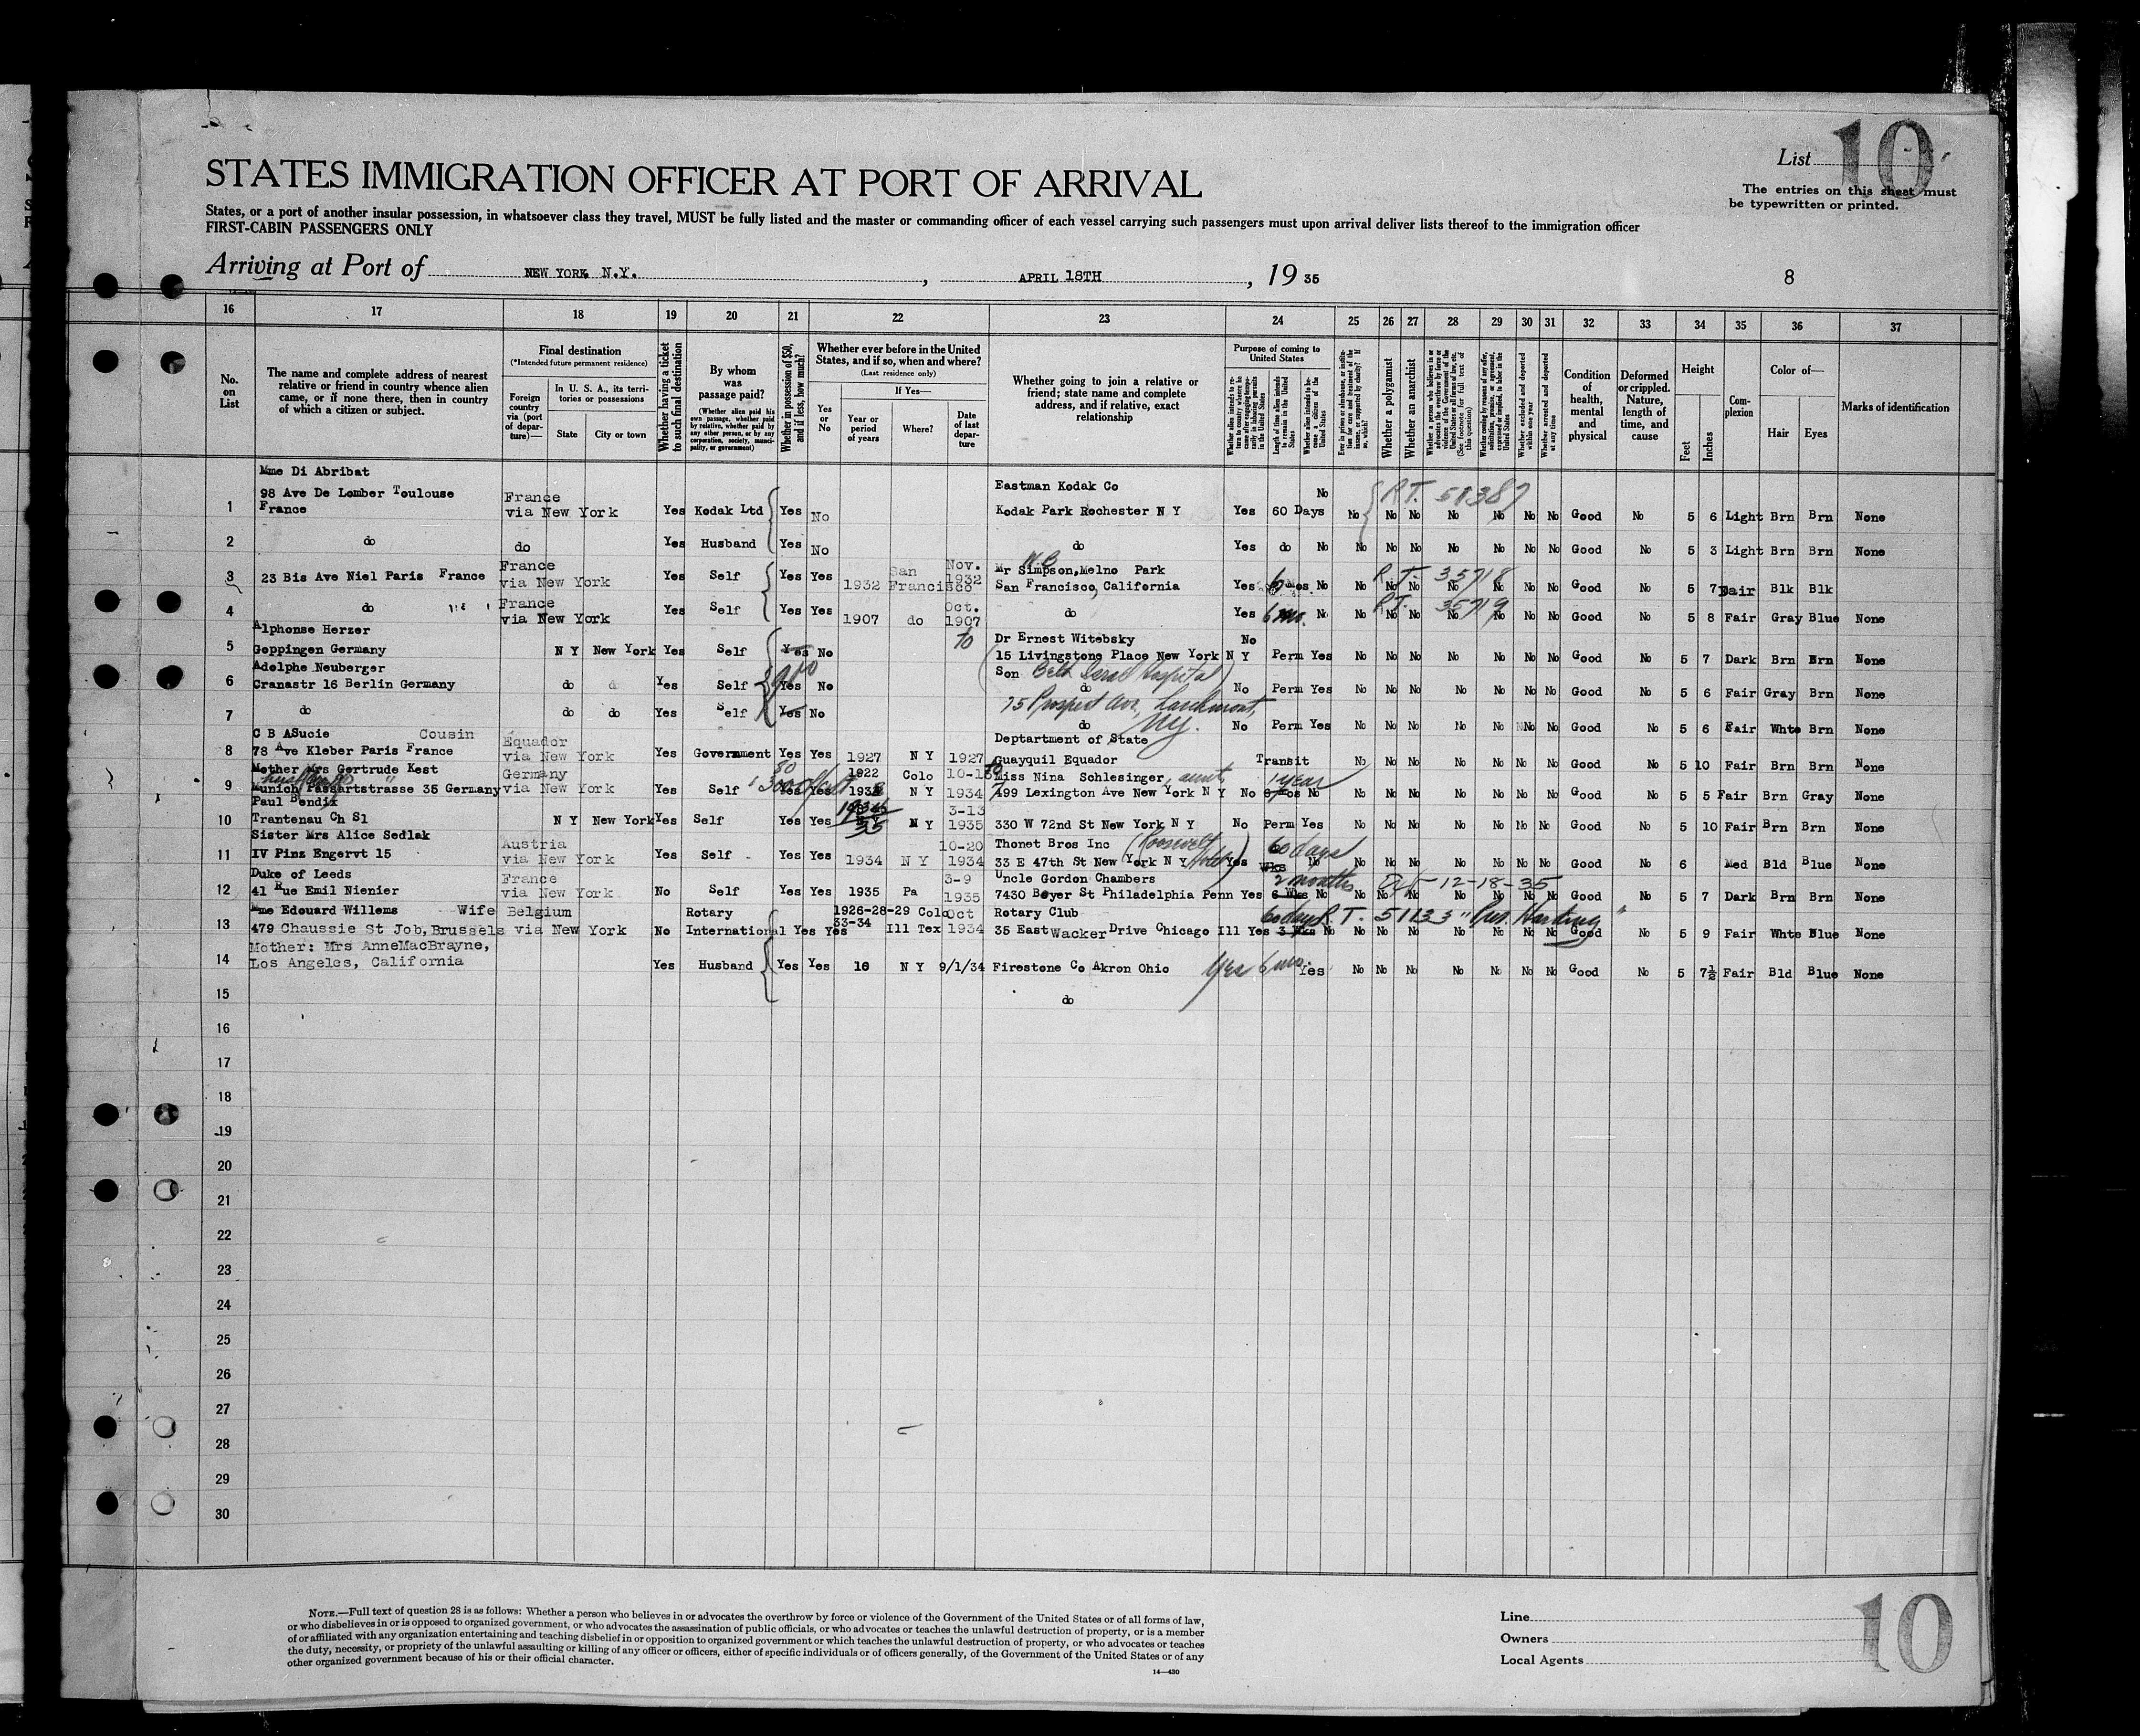 List 10
The entries on this sheet must
be typewritten or printed.
STATES IMMIGRATION OFFICER AT PORT OF ARRIVAL
States, or a port of another insular possession, in whatsoever class they travel, MUST be fully listed and the master or commanding officer of each vessel carrying such passengers must upon arrival deliver lists thereof to the immigration officer
FIRST-CABIN PASSENGERS ONLY
Arriving at Port of NEW YORK N.Y., APRIL 18TH, 19 35
8
16 17 18 19 20 21 22 23 24 25 26 27 28 29 30 31 32 33 34 35 36 37
No. on List
The name and complete address of nearest relative or friend in country whence alien came, or if none there, then in country of which a citizen or subject.
Final destination
(*Intended future permanent residence)
Foreign country via (port of departure)—
In U. S. A., its territories or possessions
State
City or town
Whether having a ticket to such final destination
By whom was passage paid?
(Whether alien paid his own passage, whether paid by relative, whether paid by any other person, or by any corporation, society, municipality, or government)
Whether in possession of $50, and if less, how much?
Whether ever before in the United States, and if so, when and where?
(Last residence only)
If Yes—
Yes or No
Year or period of years
Where?
Date of last departure
Whether going to join a relative or friend; state name and complete address, and if relative, exact relationship
Purpose of coming to United States
Whether alien intends to return to country whence he came after engaging temporarily in laboring pursuits in the United States
Length of time alien intends to remain in the United States
Whether alien intends to become a citizen of the United States
Ever in prison or almshouse, or institution for care and treatment of the insane, or supported by charity? If so, which?
Whether a polygamist
Whether an anarchist
Whether a person who believes in or advocates the overthrow by force or violence of the Government of the United States or all forms of law, etc. (See footnote for full text of this question)
Whether coming by reason of any offer, solicitation, promise, or agreement, expressed or implied, to labor in the United States
Whether excluded and deported within one year
Whether arrested and deported at any time
Condition of health, mental and physical
Deformed or crippled. Nature, length of time, and cause
Height
Feet
Inches
Complexion
Color of—
Hair
Eyes
Marks of identification
Mme Di Abribat
98 Ave De Lomber Toulouse Eastman Kodak Co No R.T. 51387
1 France France via New York Yes Kodak Ltd Yes No Kodak Park Rochester N Y Yes 60 Days No No No No No No No Good No 5 6 Light Brn Brn None
2 do do Yes Husband Yes No do Yes do No No No No No No No No Good No 5 3 Light Brn Brn None
France San Nov. Mr Simpson, Melno Park R.T. 35718
3 23 Bis Ave Niel Paris France via New York Yes Self Yes Yes 1932 Francisco 1932 San Francisco, California Yes 6 mos No No No No No No No No Good No 5 7 Fair Blk Blk
France Oct. R.T. 35719
4 do via New York Yes Self Yes Yes 1907 do 1907 do Yes 6 mo. No No No No No No No No Good No 5 8 Fair Gray Blue None
Alphonse Herzer to Dr Ernest Witebsky No
5 Goppingen Germany N Y New York Yes Self Yes No 15 Livingstone Place New York N Y Perm Yes No No No No No No No Good No 5 7 Dark Brn Brn None
Adelphe Neuberger Son Beth Israel Hospital
6 Cranastr 16 Berlin Germany do do Yes Self Yes No do No Perm Yes No No No No No No No Good No 5 6 Fair Gray Brn None
75 Prospect Ave, Larchmont, N.Y.
7 do do do Yes Self Yes No do No Perm Yes No No No No No No No Good No 5 6 Fair Whte Brn None
C B ASucie Cousin Equador Deptartment of State
8 78 Ave Kleber Paris France via New York Yes Government Yes Yes 1927 N Y 1927 Guayquil Equador Transit No No No No No No No Good No 5 10 Fair Brn Brn None
Mother Mrs Gertrude Kest Germany 1922 Colo Miss Nina Schlesinger, aunt 1 year
9 Munich Passartstrasse 35 Germany via New York Yes Self Yes Yes N Y 1934 499 Lexington Ave New York N Y No 6 mos No No No No No No No No Good No 5 5 Fair Brn Gray None
Paul Bendix 3-13
10 Trantenau Ch Sl N Y New York Yes Self Yes Yes 35 N Y 1935 330 W 72nd St New York N Y No Perm Yes No No No No No No No Good No 5 10 Fair Brn Brn None
Sister Mrs Alice Sedlak Austria 10-20 Thonet Bros Inc (Roosevelt Hotel) 60 days
11 IV Pinz Engervt 15 via New York Yes Self Yes Yes 1934 N Y 1934 33 E 47th St New York N Y Yes Wks No No No No No No No No Good No 6 Med Bld Blue None
Duke of Leeds France 3-9 Uncle Gordon Chambers 2 months 12-18-35
12 41 Rue Emil Nienier via New York No Self Yes Yes 1935 Pa 1935 7430 Boyer St Philadelphia Penn Yes 6 Wks No No No No No No No No Good No 5 7 Dark Brn Brn None
Mme Edouard Willems Wife Belgium Rotary 1926-28-29 Colo Oct Rotary Club 60 days R.T. 51133 "Pres. Harding"
13 479 Chaussie St Job, Brussels via New York No International Yes Yes 33-34 Ill Tex 1934 35 East Wacker Drive Chicago Ill Yes 3 Wks No No No No No No No No Good No 5 9 Fair Whte Blue None
Mother: Mrs AnneMacBrayne,
14 Los Angeles, California Yes Husband Yes Yes 16 N Y 9/1/34 Firestone Co Akron Ohio Yes 6 mos. Yes No No No No No No No Good No 5 7½ Fair Bld Blue None
15 do
16
17
18
19
20
21
22
23
24
25
26
27
28
29
30
NOTE.—Full text of question 28 is as follows: Whether a person who believes in or advocates the overthrow by force or violence of the Government of the United States or of all forms of law,
or who disbelieves in or is opposed to organized government, or who advocates the assassination of public officials, or who advocates or teaches the unlawful destruction of property, or is a member
of or affiliated with any organization entertaining and teaching disbelief in or opposition to organized government or which teaches the unlawful destruction of property, or who advocates or teaches
the duty, necessity, or propriety of the unlawful assaulting or killing of any officer or officers, either of specific individuals or of officers generally, of the Government of the United States or of any
other organized government because of his or their official character.
14—430
Line
Owners
Local Agents
10